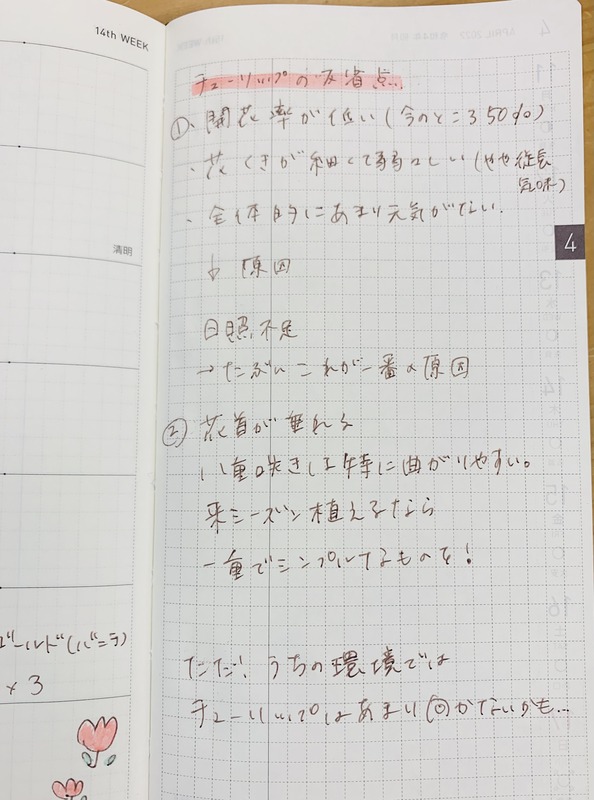 14th WEEK
清明
ゴールド(バニラ)
×3
チューリップの反省点.
①、開花率が低い(今のところ50%)
・花くきが細くて弱々しい(やや徒長
気味)
・全体的にあまり元気がない.
↓ 原因
日照不足
→たぶんこれが一番の原因
② 花首が垂れる
八重咲きは特に曲がりやすい。
来シーズン植えるなら
一重でシンプルなものを!
ただ!うちの環境では
チューリップはあまり向かないかも…
4